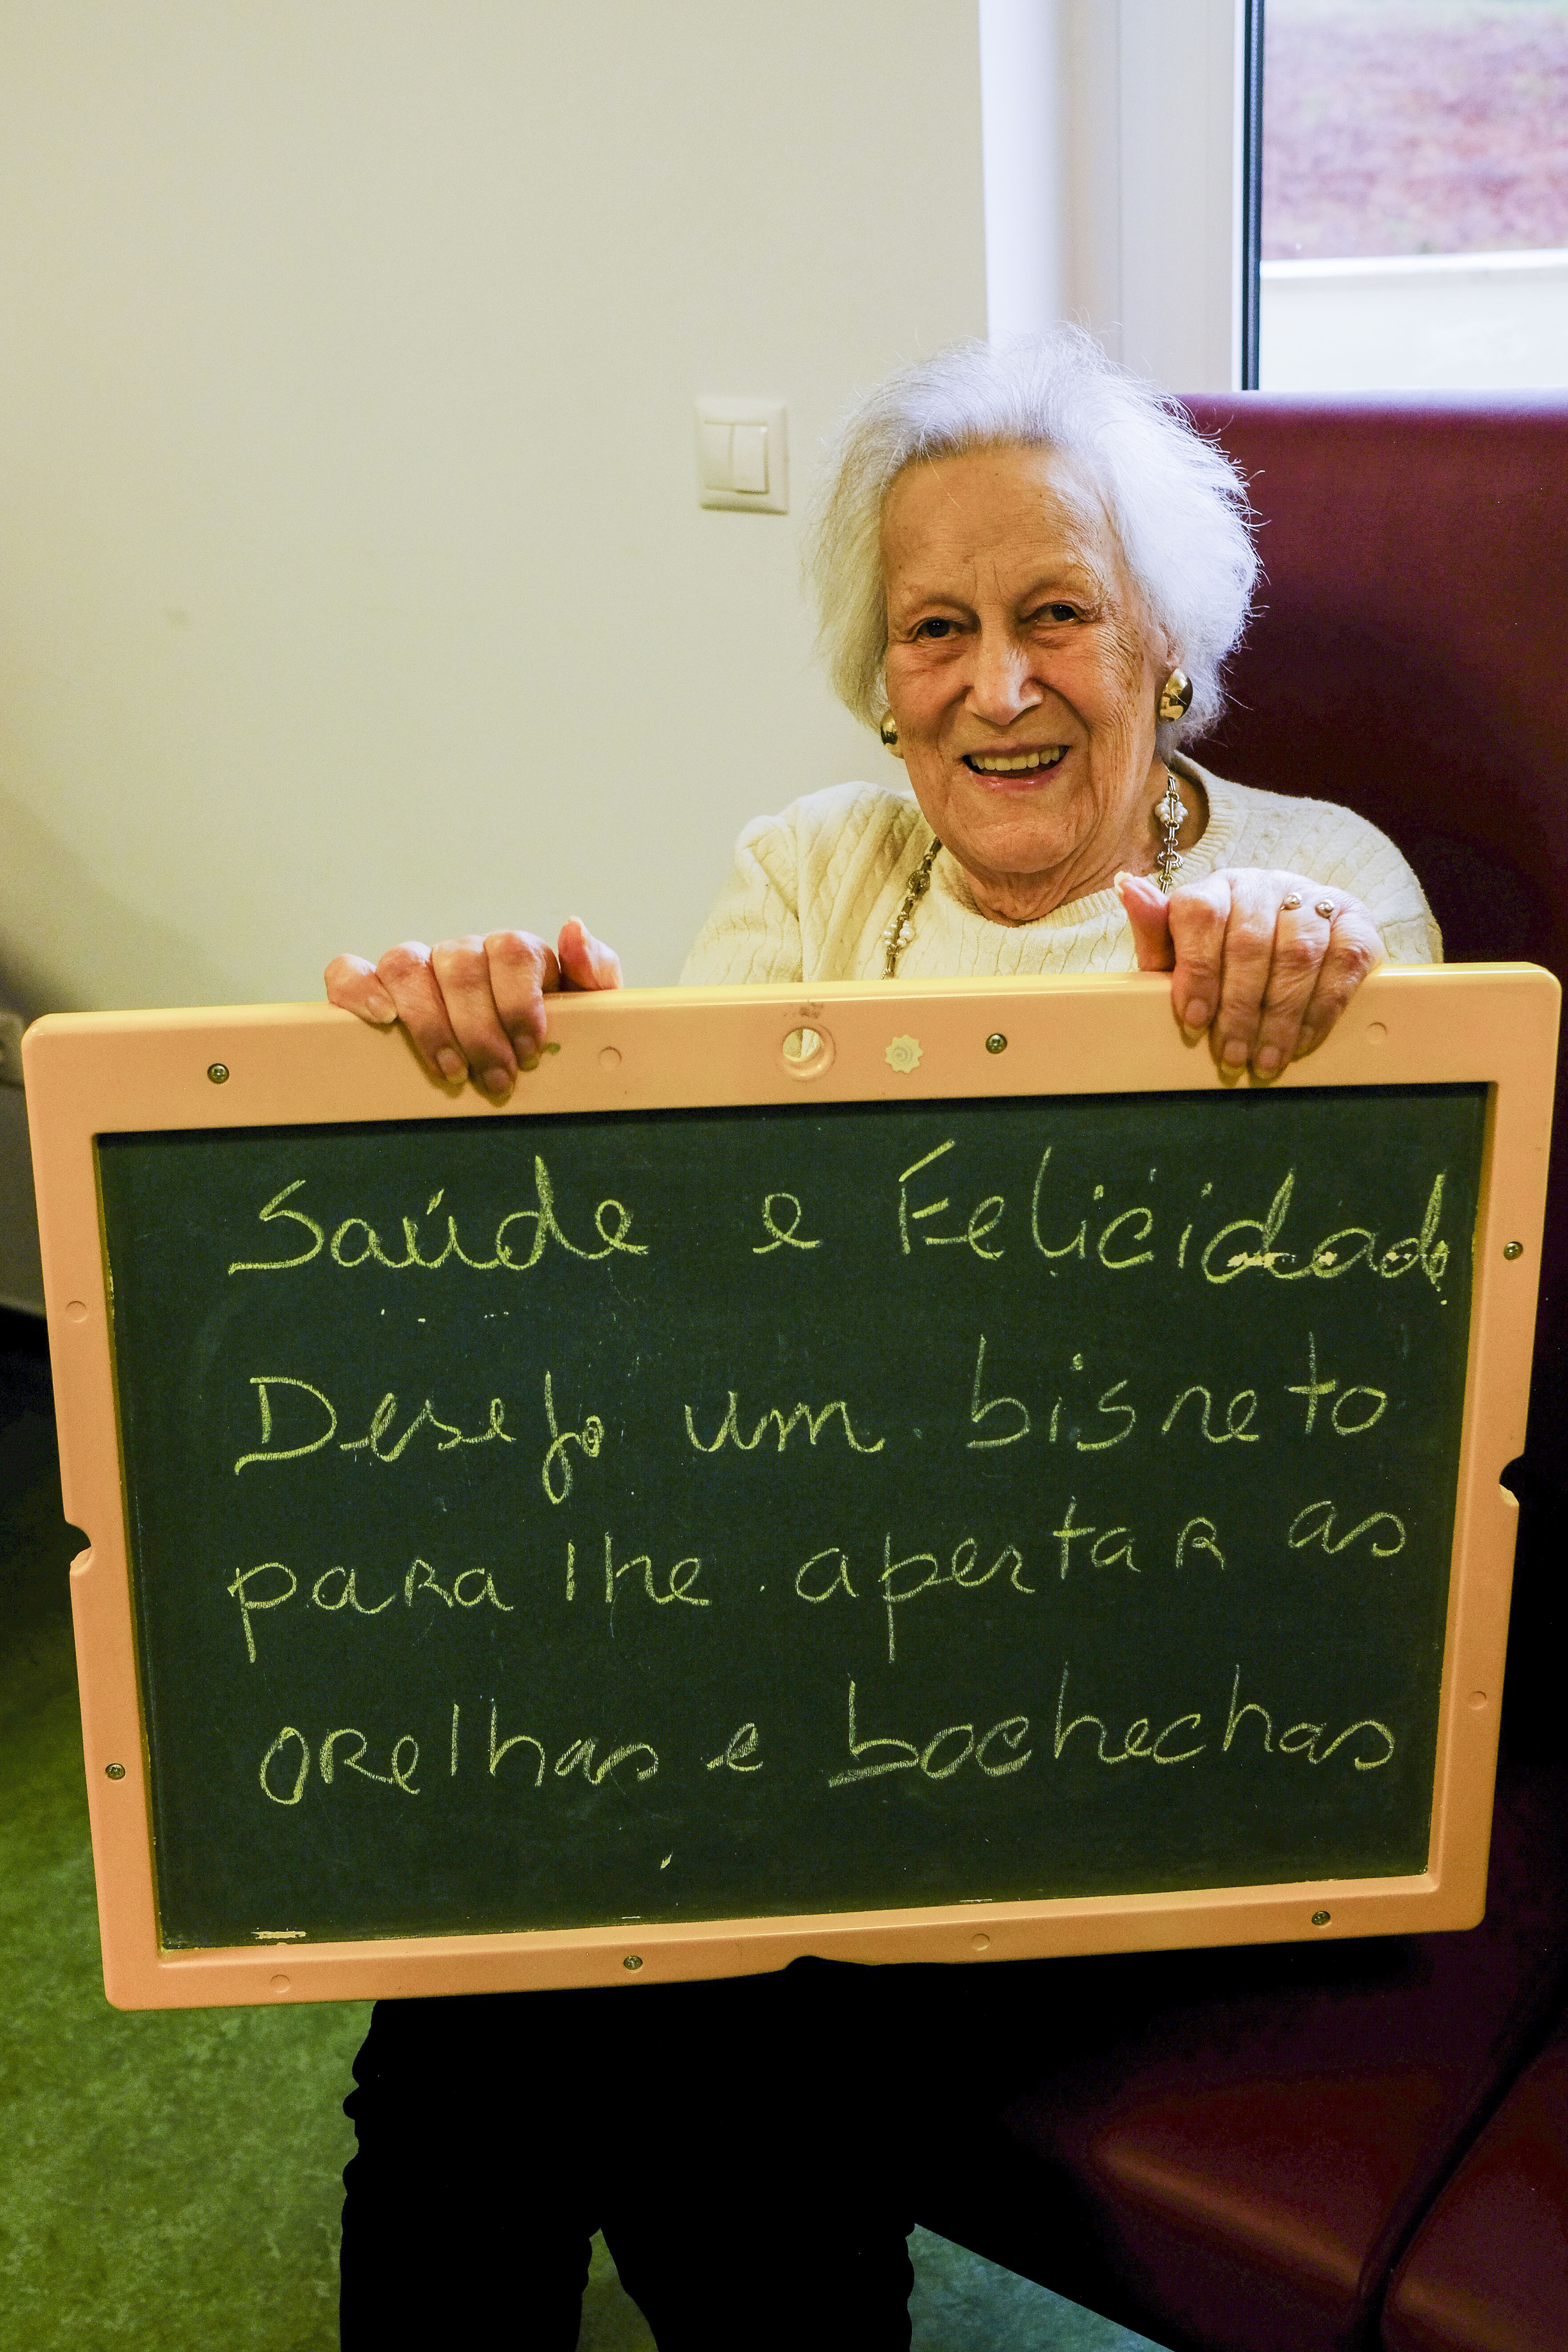 Saúde e Felicidade
Desejo um bisneto
para lhe apertar as
orelhas e bochechas